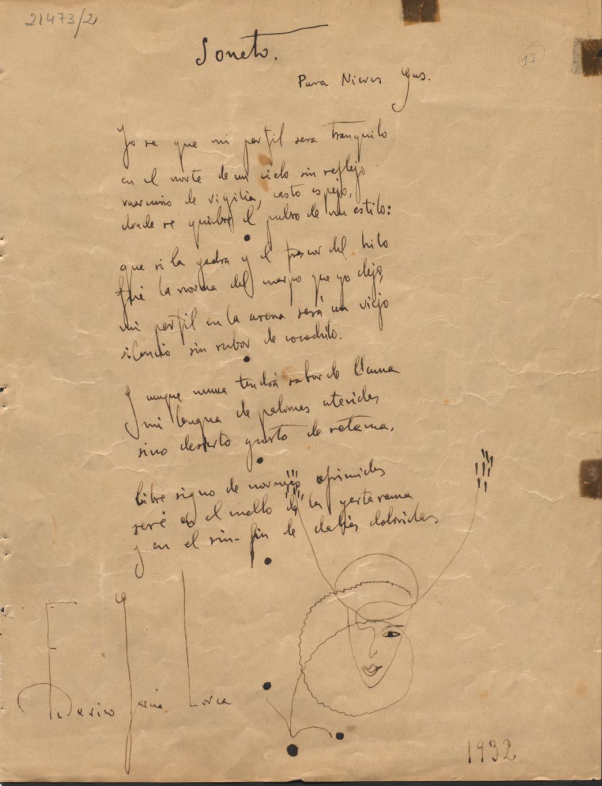 21473/2
17
Soneto.
Para Nieves
Yo se que mi perfil sera tranquilo
en el norte de un cielo sin reflejo
mercurio de vigilia, casto espejo,
donde se quiebre el pulso de mi estilo:
que si la yedra y el frescor del hilo
fué la norma del cuerpo que yo dejo,
mi perfil en la arena será un viejo
silencio sin rubor de cocodrilo.
Y aunque nunca tendrá sabor de llama
mi lengua de palomas ateridas
sino desierto gusto de retama,
libre signo de normas oprimidas
seré en el cuello de la yerta rama
y en el sin-fin de dalias doloridas.
Federico García Lorca
1932